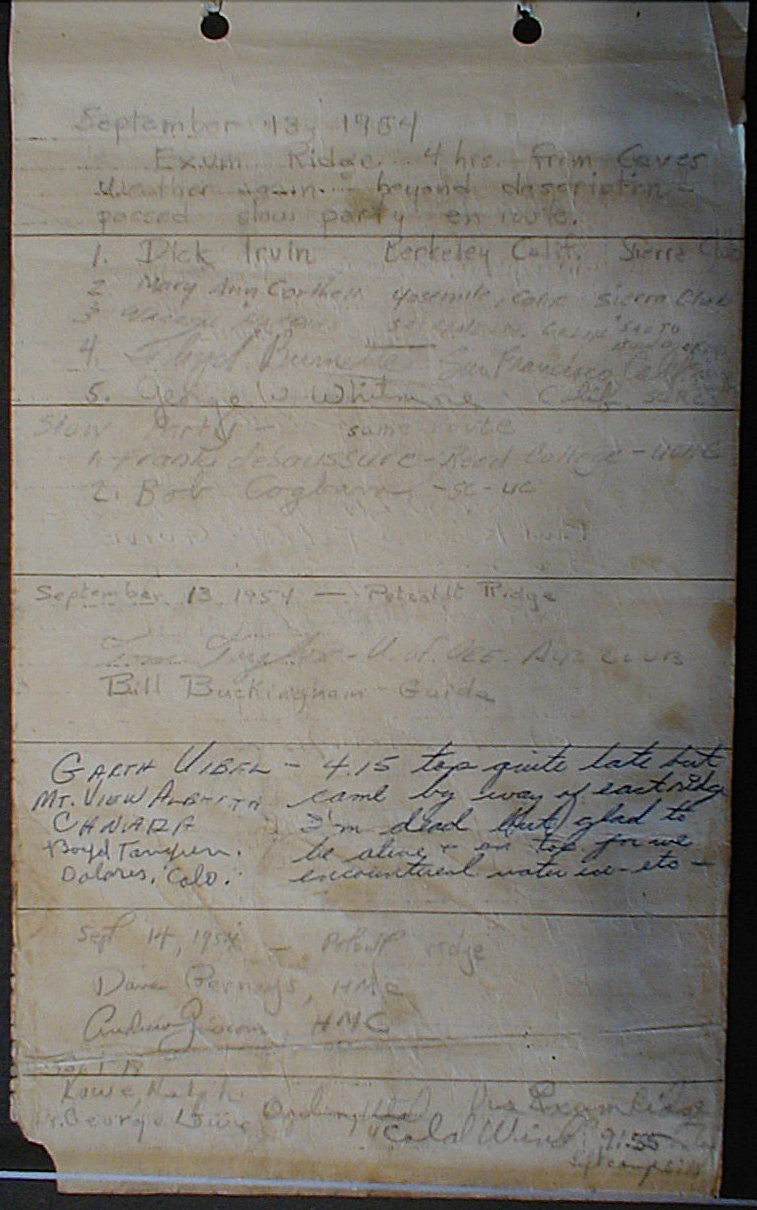 September 13, 1954
Exum Ridge. 4 hrs. from Caves
Weather again - beyond description -
passed slow party en route.
1. Dick Irvin Berkeley Calif. Sierra Club
2 Mary Ann Corthell Yosemite, Calif Sierra Club
3
4. Floyd Burnette San Francisco Calif
5. George W. Whitmore Calif.
Slow Party - same route
1. Frank deSaussure - Reed College - UCHC
2. Bob Cogburn - SC - UC
September 13 1954 — Petzoldt Ridge
Tom Taylor - U. of Ore. Alp CLUB
Bill Buckingham - Guide
GARTH VIBEL - 4.15 top quite late but
MT. VIEW ALBERTA came by way of east ridge
CANADA I'm dead but glad to
Boyd be alive + on top for we
Dolores, Colo. encountered water ice - etc -
Sept 14, 1954 — Petzolt ridge
Dave Bernays, HMC
Andrew Griscom, HMC
Sept 18
Lowe, Ralph
George Lowe Ogden, Utah Via Exum Ridge
Cold Wind